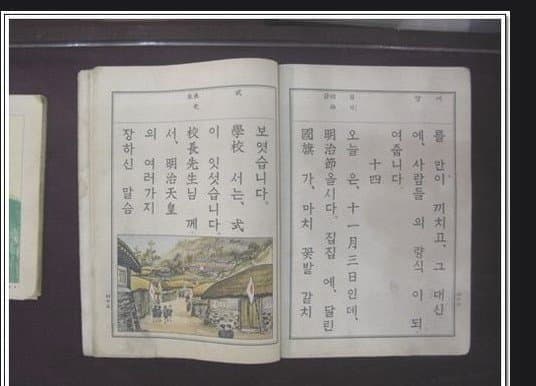 를 만이 끼치고, 그 대신
에, 사람들 의 량식 이 되
여줍니다.
十四
오늘 은, 十一月三日인데,
明治節올시다. 집집 에, 달린
國旗 가, 마치 꽃밭 갈치
式
보엿습니다.
學校 서는, 式
이 잇섯습니다.
校長先生님 께
서, 明治天皇
의 여러가지
장하신 말슴